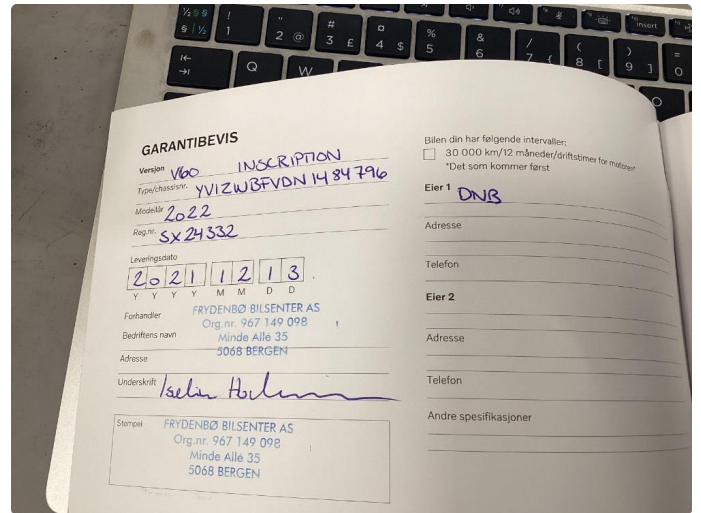 ½ § § ! " # ¤ % & / ( ) =
§ ½ 1 2 @ 3 £ 4 $ 5 6 7 { 8 [ 9 ] 0
insert
Q W O
GARANTIBEVIS
Versjon V60 INSCRIPTION
Type/chassisnr. YV1ZWBFVDN1484796
Modellår 2022
Reg.nr. SX24332
Leveringsdato
2021 12 13
Y Y Y Y M M D D
Forhandler FRYDENBØ BILSENTER AS
Org.nr. 967 149 098
Bedriftens navn Minde Allé 35
5068 BERGEN
Adresse
Underskrift Iselin
Stempel FRYDENBØ BILSENTER AS
Org.nr. 967 149 098
Minde Allé 35
5068 BERGEN
Bilen din har følgende intervaller:
30 000 km/12 måneder/driftstimer for motoren*
*Det som kommer først
Eier 1 DNB
Adresse
Telefon
Eier 2
Adresse
Telefon
Andre spesifikasjoner